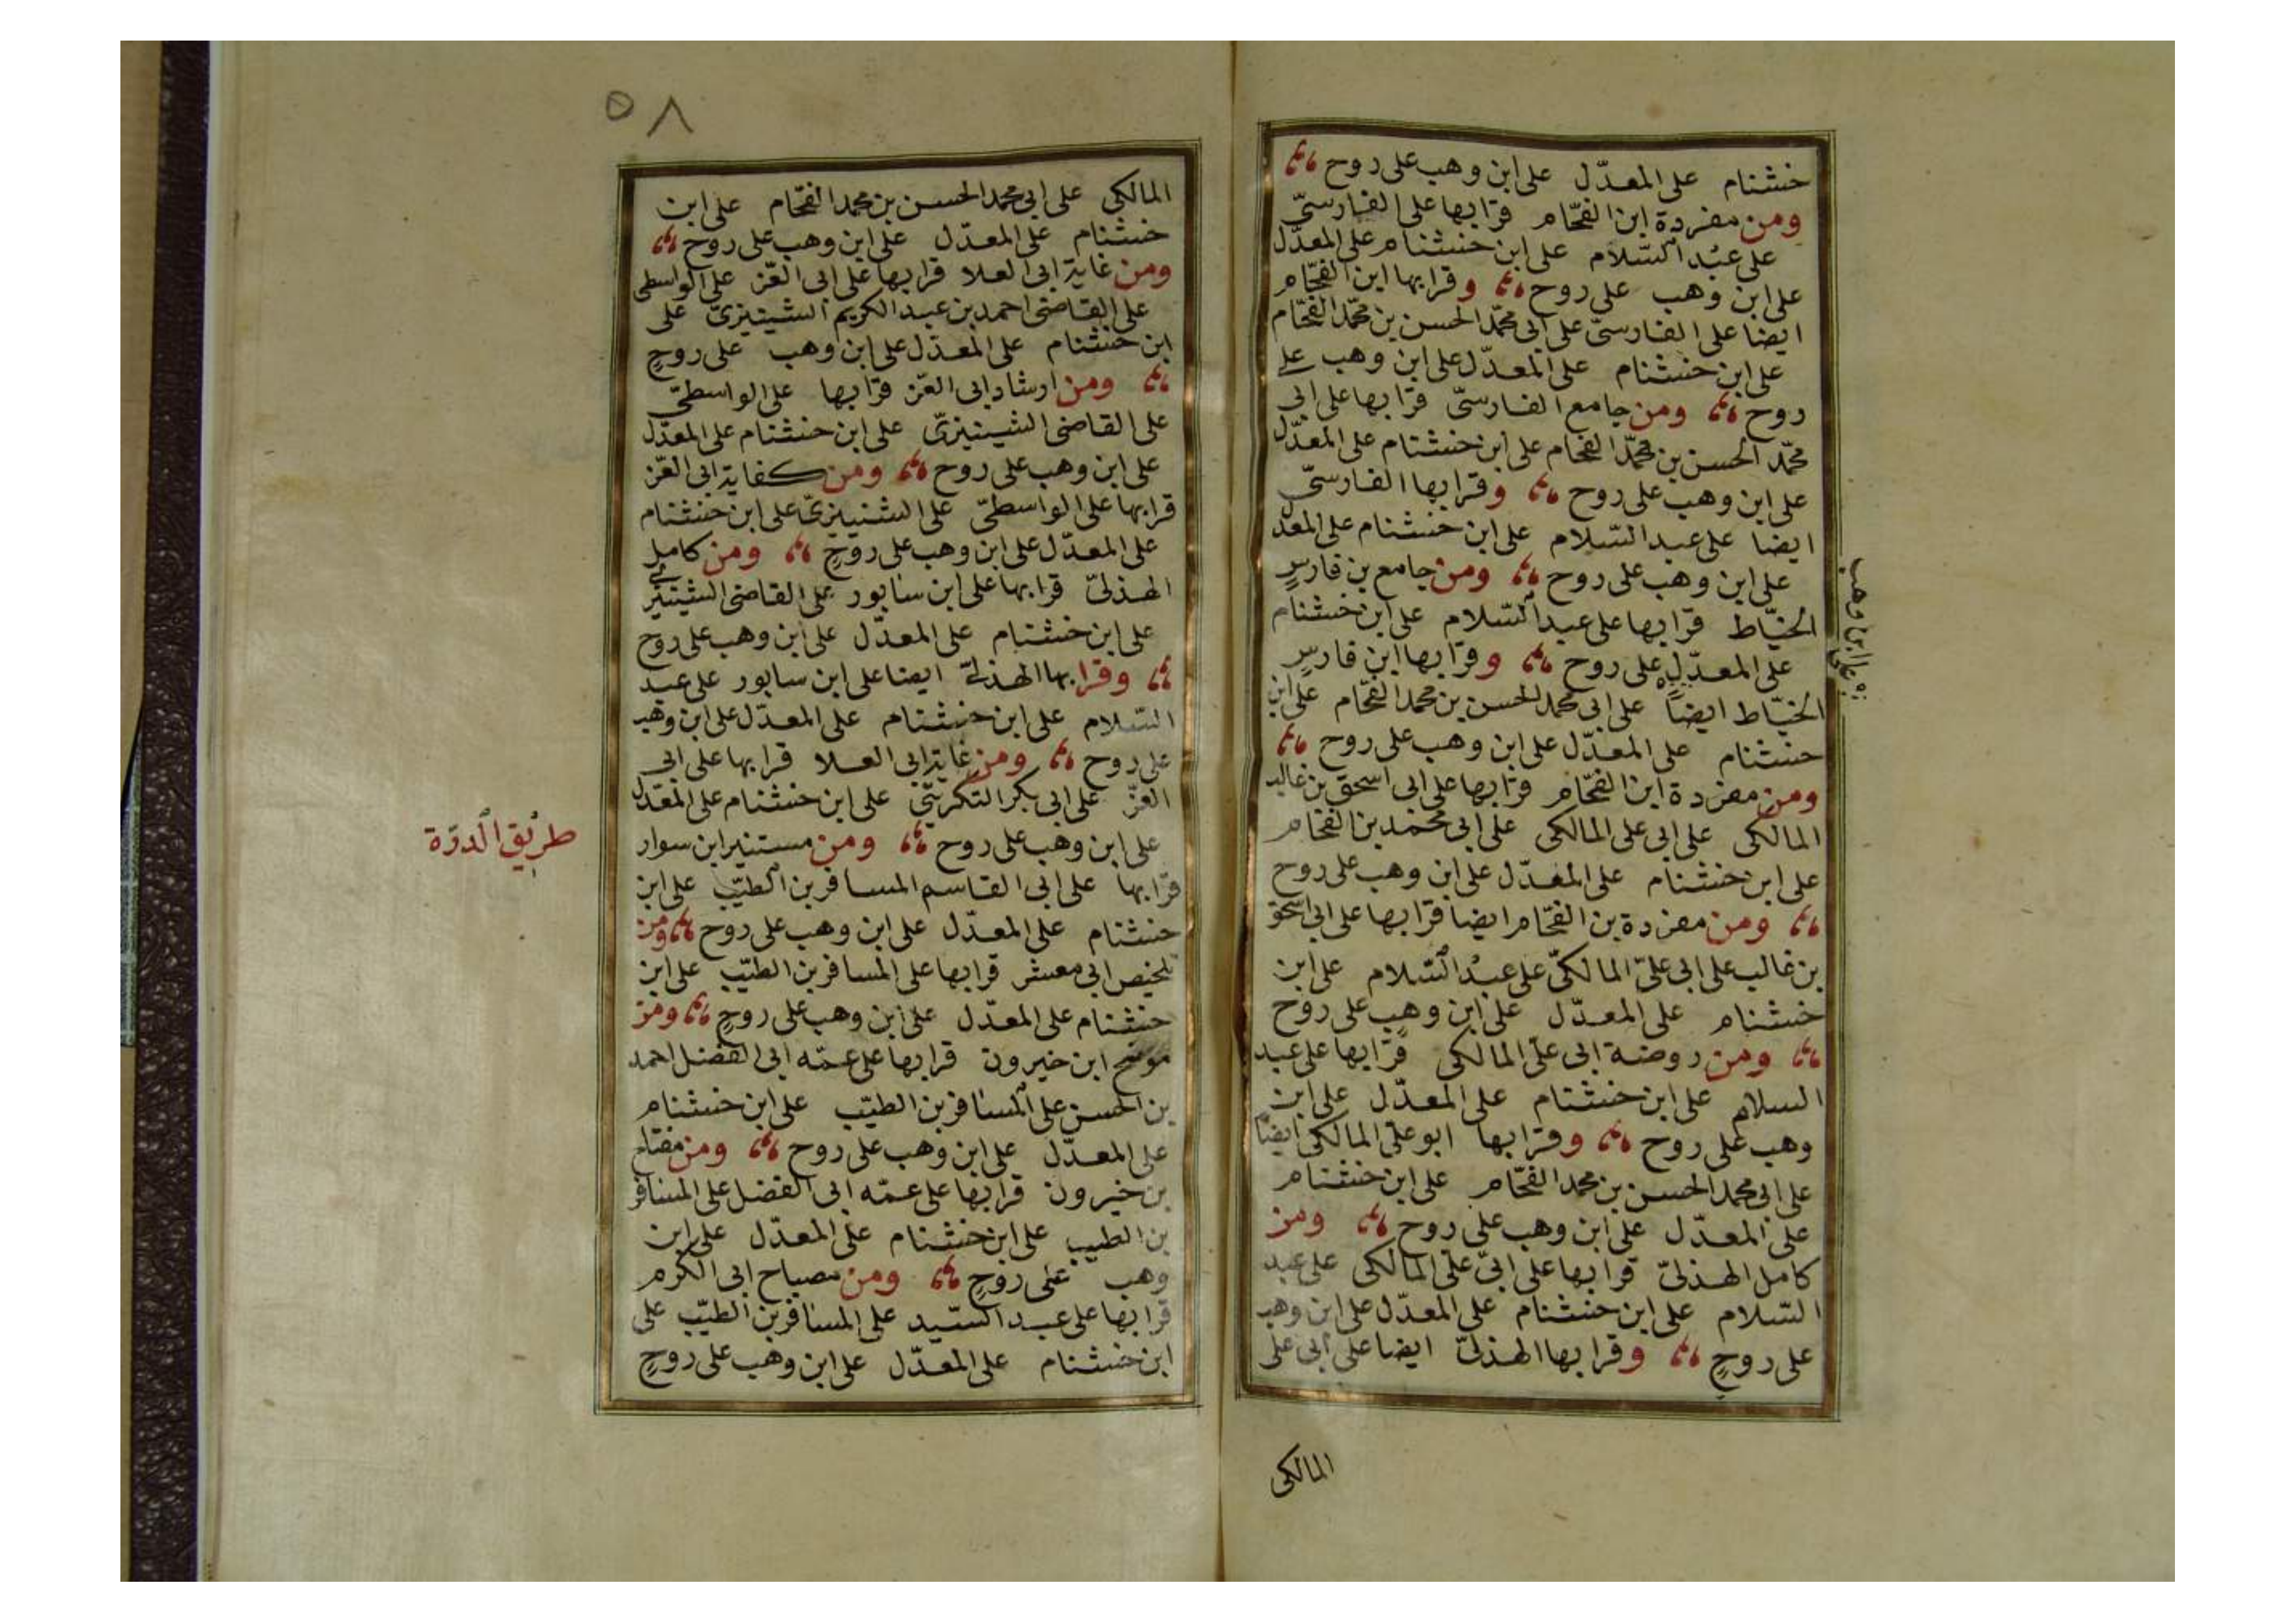 خشنام على المعدّل على ابن وهب على روح
ومن مفردة ابن الفحّام قرا بها على الفارسىّ
على عبد السّلام على ابن خشنام على المعدّل
على ابن وهب على روح وقرا بها ابن الفحّام
ايضا على الفارسىّ على ابى محمّد الحسن بن محمّد الفحّام
على ابن خشنام على المعدّل على ابن وهب على
روح ومن جامع الفارسىّ قرا بها على ابى
محمّد الحسن بن محمّد الفحام على ابن خشنام على المعدّل
على ابن وهب على روح وقرا بها الفارسىّ
ايضا على عبد السّلام على ابن خشنام على المعدل
على ابن وهب على روح ومن جامع بن فارسٍ
الخيّاط قرا بها على عبد السّلام على ابن خشنام
على المعدّل على روح وقرا بها ابن فارسٍ
على ابن وهب
الخيّاط ايضاً على ابى محمد الحسن بن محمد الفحّام على ابن
خشنام على المعدّل على ابن وهب على روح
ومن مفردة ابن الفحّام قرا بها على ابى اسحق بن غالب
المالكى على ابى على المالكى على ابى محمد بن الفحّام
على ابن خشنام على المعدّل على ابن وهب على روح
ومن مفردة بن الفحّام ايضا قرا بها على ابى اسحق
بن غالب على ابى علىّ المالكىّ على عبد السّلام على ابن
خشنام على المعدّل على ابن وهب على روح
ومن روضة ابى على المالكى قرا بها على عبد
السلام على ابن خشنام على المعدّل على ابن
وهب على روح وقرا بها ابو على المالكى ايضاً
على ابى محمد الحسن بن محمد الفحّام على ابن خشنام
على المعدّل على ابن وهب على روح ومن
كامل الهذلىّ قرا بها على ابى على المالكى على عبد
السّلام على ابن خشنام على المعدّل على ابن وهب
على روحٍ وقرا بها الهذلىّ ايضا على ابى على
المالكى
٥٨
المالكى على ابى محمد الحسن بن محمد الفحّام على ابن
خشنام على المعدّل على ابن وهب على روح
ومن غاية ابى العلا قرا بها على ابى العّز على الواسطى
على القاضى احمد بن عبد الكريم الشينيزىّ على
ابن خشنام على المعدّل على ابن وهب على روحٍ
ومن ارشاد ابى العّز قرا بها على الواسطىّ
على القاضى الشينيزىّ على ابن خشنام على المعدّل
على ابن وهب على روح ومن كفاية ابى العّز
قرا بها على الواسطىّ على الشينيزىّ على ابن خشنام
على المعدّل على ابن وهب على روحٍ ومن كامل
الهذلىّ قرا بها على ابن سابور على القاضى الشينيزى
على ابن خشنام على المعدّل على ابن وهب على روح
وقرا بها الهذلى ايضا على ابن سابور على عبد
السّلام على ابن خشنام على المعدّل على ابن وهب
على روح ومن غاية ابى العلا قرا بها على ابى
العزّ على ابى بكر التكريتى على ابن خشنام على المعدّل
على ابن وهب على روح ومن مستنير ابن سوار
طريق الدرّة
قرا بها على ابى القاسم المسافر بن الطيّب على ابن
خشنام على المعدّل على ابن وهب على روح ومن
تلخيص ابى معشر قرا بها على المسافر بن الطيّب على ابن
خشنام على المعدّل على ابن وهب على روحٍ ومن
موضح ابن خيرون قرا بها على عمّه ابى الفضل احمد
بن الحسن على المسافر بن الطيّب على ابن خشنام
على المعدّل على ابن وهب على روح ومن مفتاح
بن خيرون قرا بها على عمّه ابى الفضل على المسافر
بن الطيب على ابن خشنام على المعدّل على ابن
وهب على روحٍ ومن مصباح ابى الكرم
قرا بها على عبد السّيد على المسافر بن الطيّب على
ابن خشنام على المعدّل على ابن وهب على روحٍ